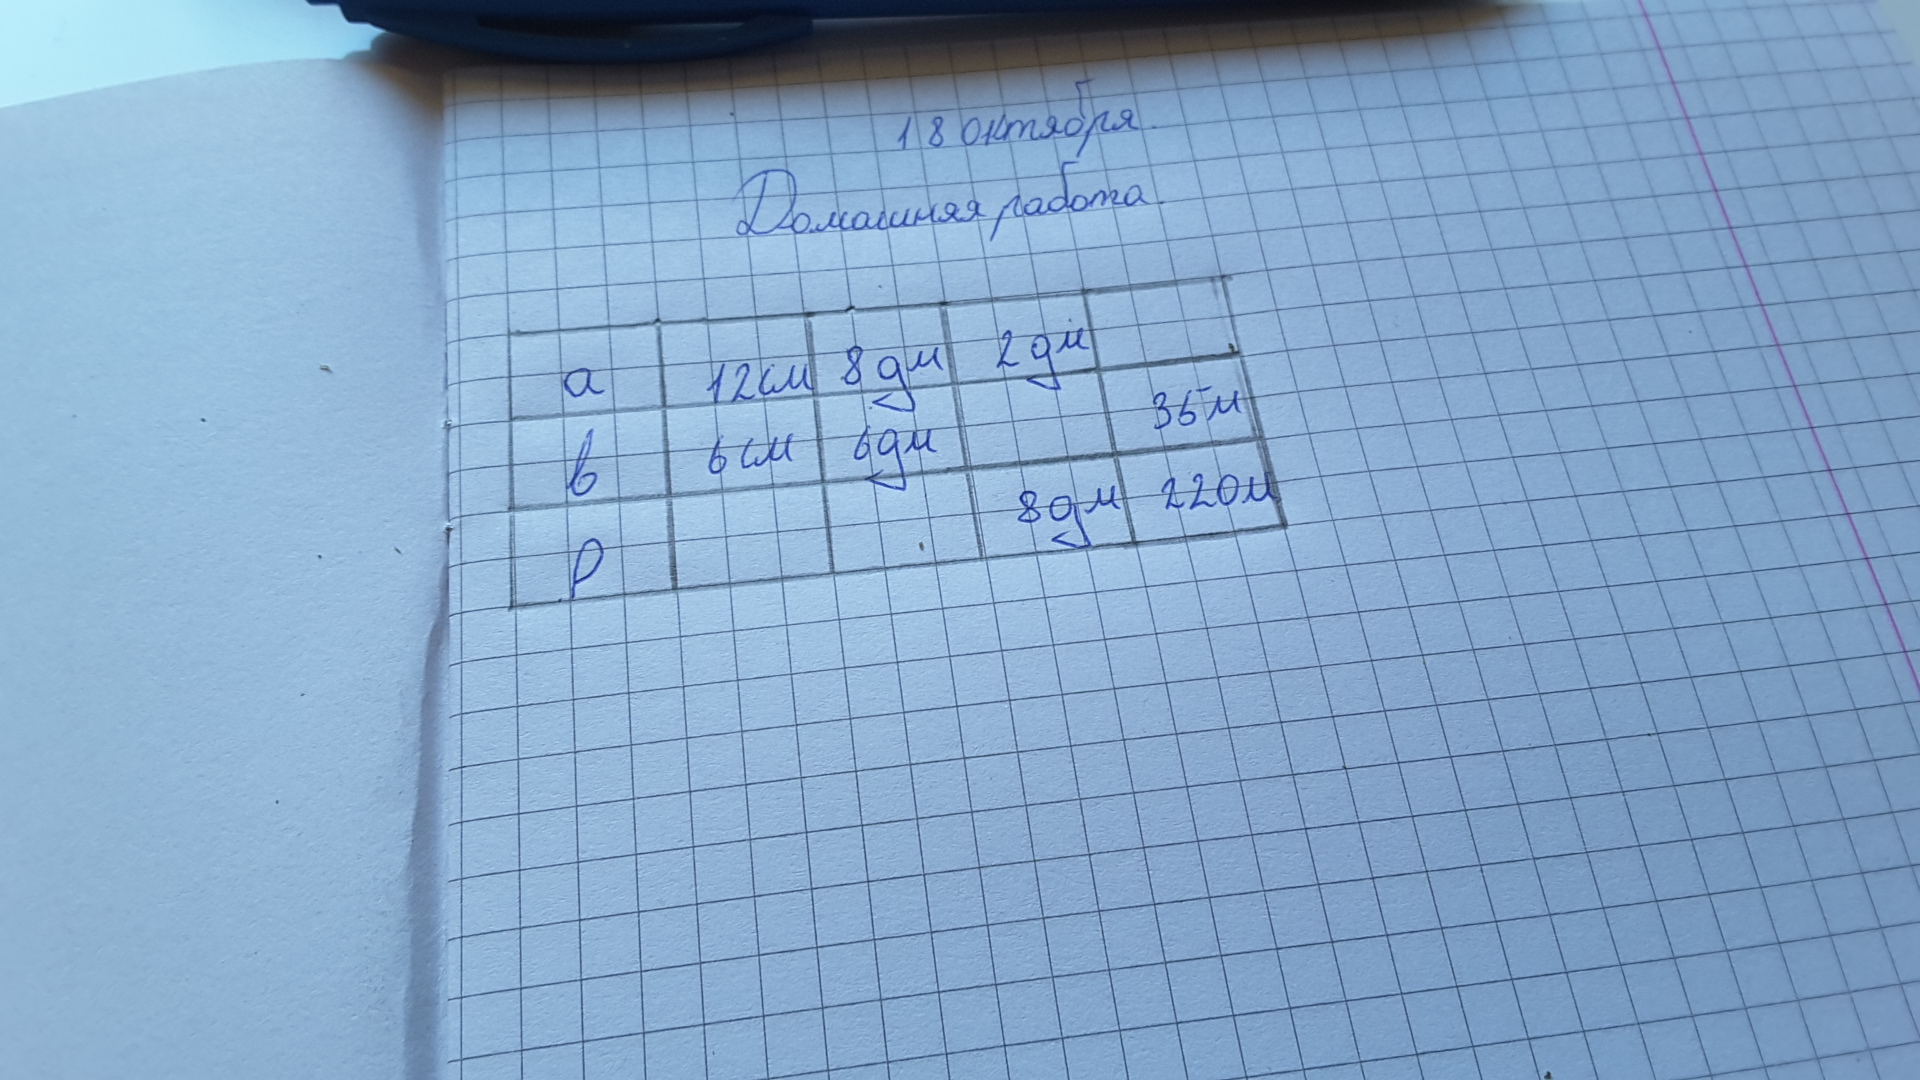 18 октября.
Домашняя работа.
a 12см 8дм 2дм
в 6см 6дм 35м
P 8дм 220м